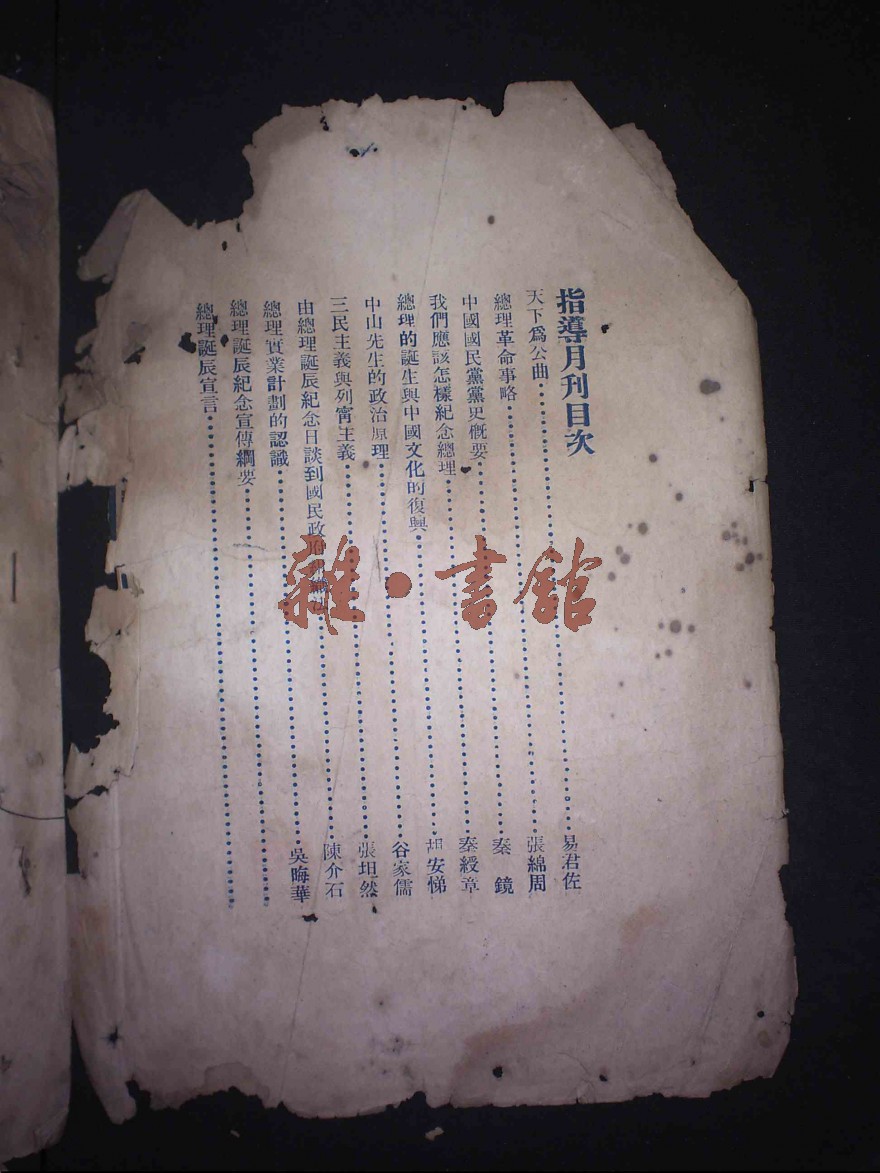 指導月刊目次
天下爲公曲……易君佐
總理革命事略……張綿周
中國國民黨黨史概要……秦　鏡
我們應該怎樣紀念總理……秦綬章
總理的誕生與中國文化的復興……胡安悌
中山先生的政治原理……谷家儒
三民主義與列甯主義……張坦然
由總理誕辰紀念日談到國民政府……陳介石
總理實業計劃的認識……吳晦華
總理誕辰紀念宣傳綱要……
總理誕辰宣言……
雜·書館